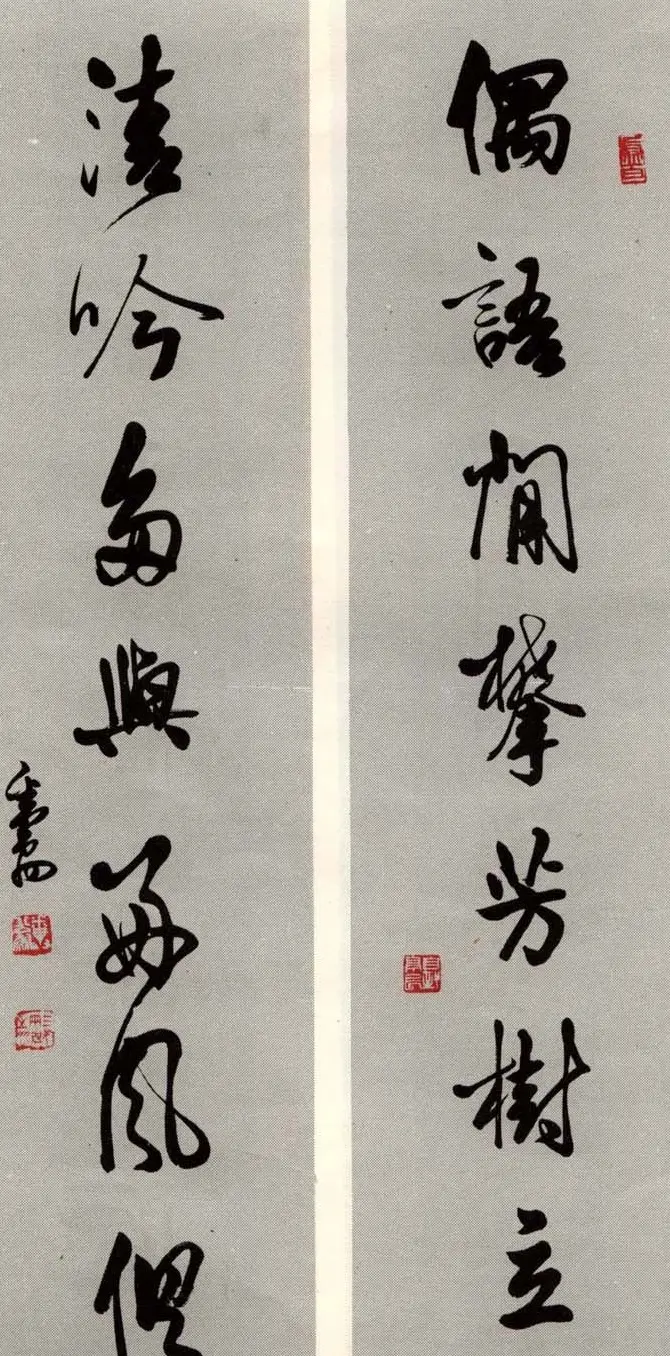 偶語閒攀芳樹立
清吟多與好風俱